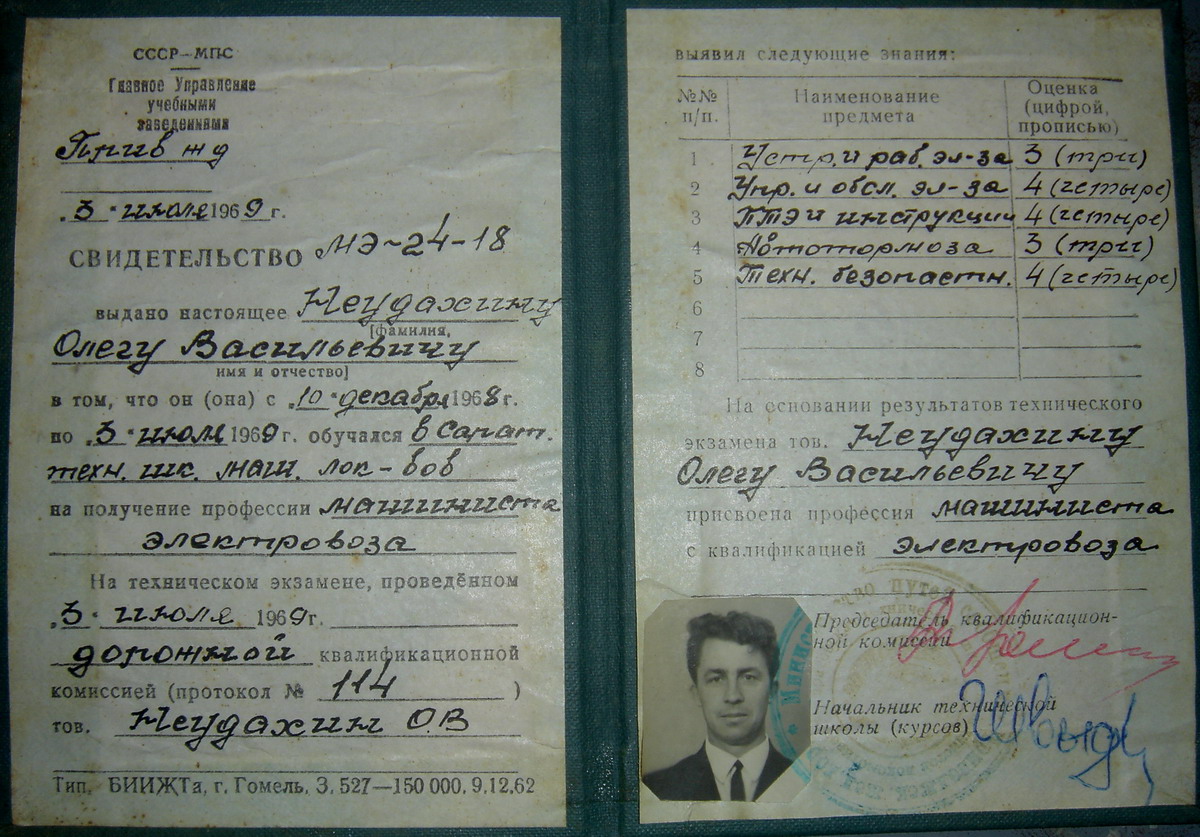 СССР—МПС
Главное Управление
учебными
заведениями
Прив жд
„3“ июля 1969 г.
СВИДЕТЕЛЬСТВО МЭ-24-18
выдано настоящее Неудахину
[фамилия,
Олегу Васильевичу
имя и отчество]
в том, что он (она) с „10“ декабря 1968 г.
по „3“ июля 1969 г. обучался в Сарат.
техн. шк. маш. лок-вов
на получение профессии машиниста
электровоза
На техническом экзамене, проведённом
„3“ июля 1969г.
дорожной квалификационной
комиссией (протокол № 114 )
тов. Неудахин О.В
Тип. БИИЖТа, г. Гомель, З. 527—150 000. 9.12.62
выявил следующие знания:
№№ п/п. Наименование предмета Оценка (цифрой, прописью)
1 Устр. и раб. эл-за 3 (три)
2 Упр. и обсл. эл-за 4 (четыре)
3 ПТЭ и инструкции 4 (четыре)
4 Автотормоза 3 (три)
5 Техн. безопастн. 4 (четыре)
6
7
8
На основании результатов технического
экзамена тов. Неудахину
Олегу Васильевичу
присвоена профессия машиниста
с квалификацией электровоза
Председатель квалификацион-
ной комиссии
Начальник технической
школы (курсов)